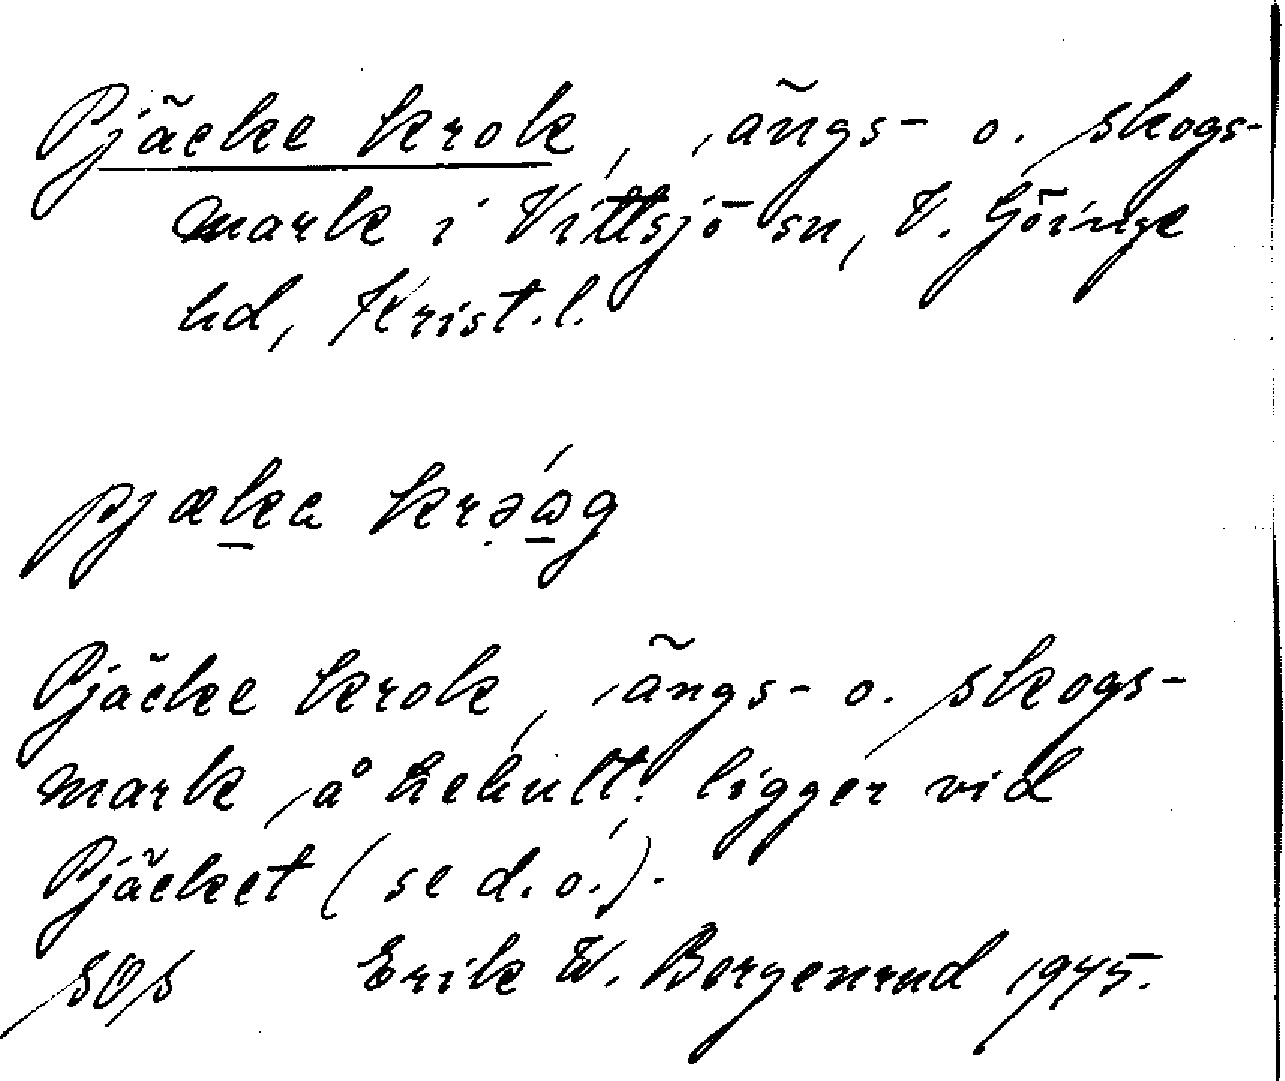 Pjäcke krok, ängs- o. skogs-
mark i Vittsjö sn, V. Göinge
hd, Krist. l.
pjæka krəωg
Pjäcke krok, ängs- o. skogs-
mark å Lehult. ligger vid
Pjäcket (se d. o.).
SOS Erik W. Bergenrud 1945.